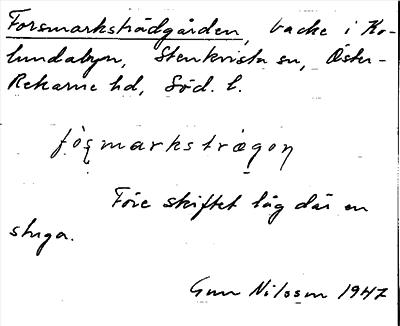 Forsmarksträdgården, backe i Ko-
lundabyn, Stenkvista sn, Öster-
Rekarne hd, Söd. l.
fǫsmarkstrægọn
Före skiftet låg där en
stuga.
Gun Nilsson 1947